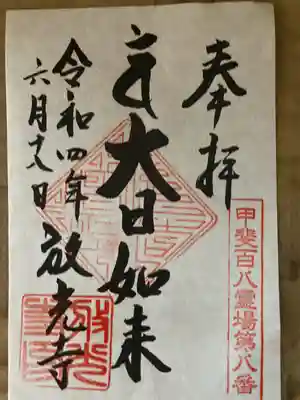 奉拝
甲斐百八霊場第八番
大日如来
令和四年
六月十八日
放光寺